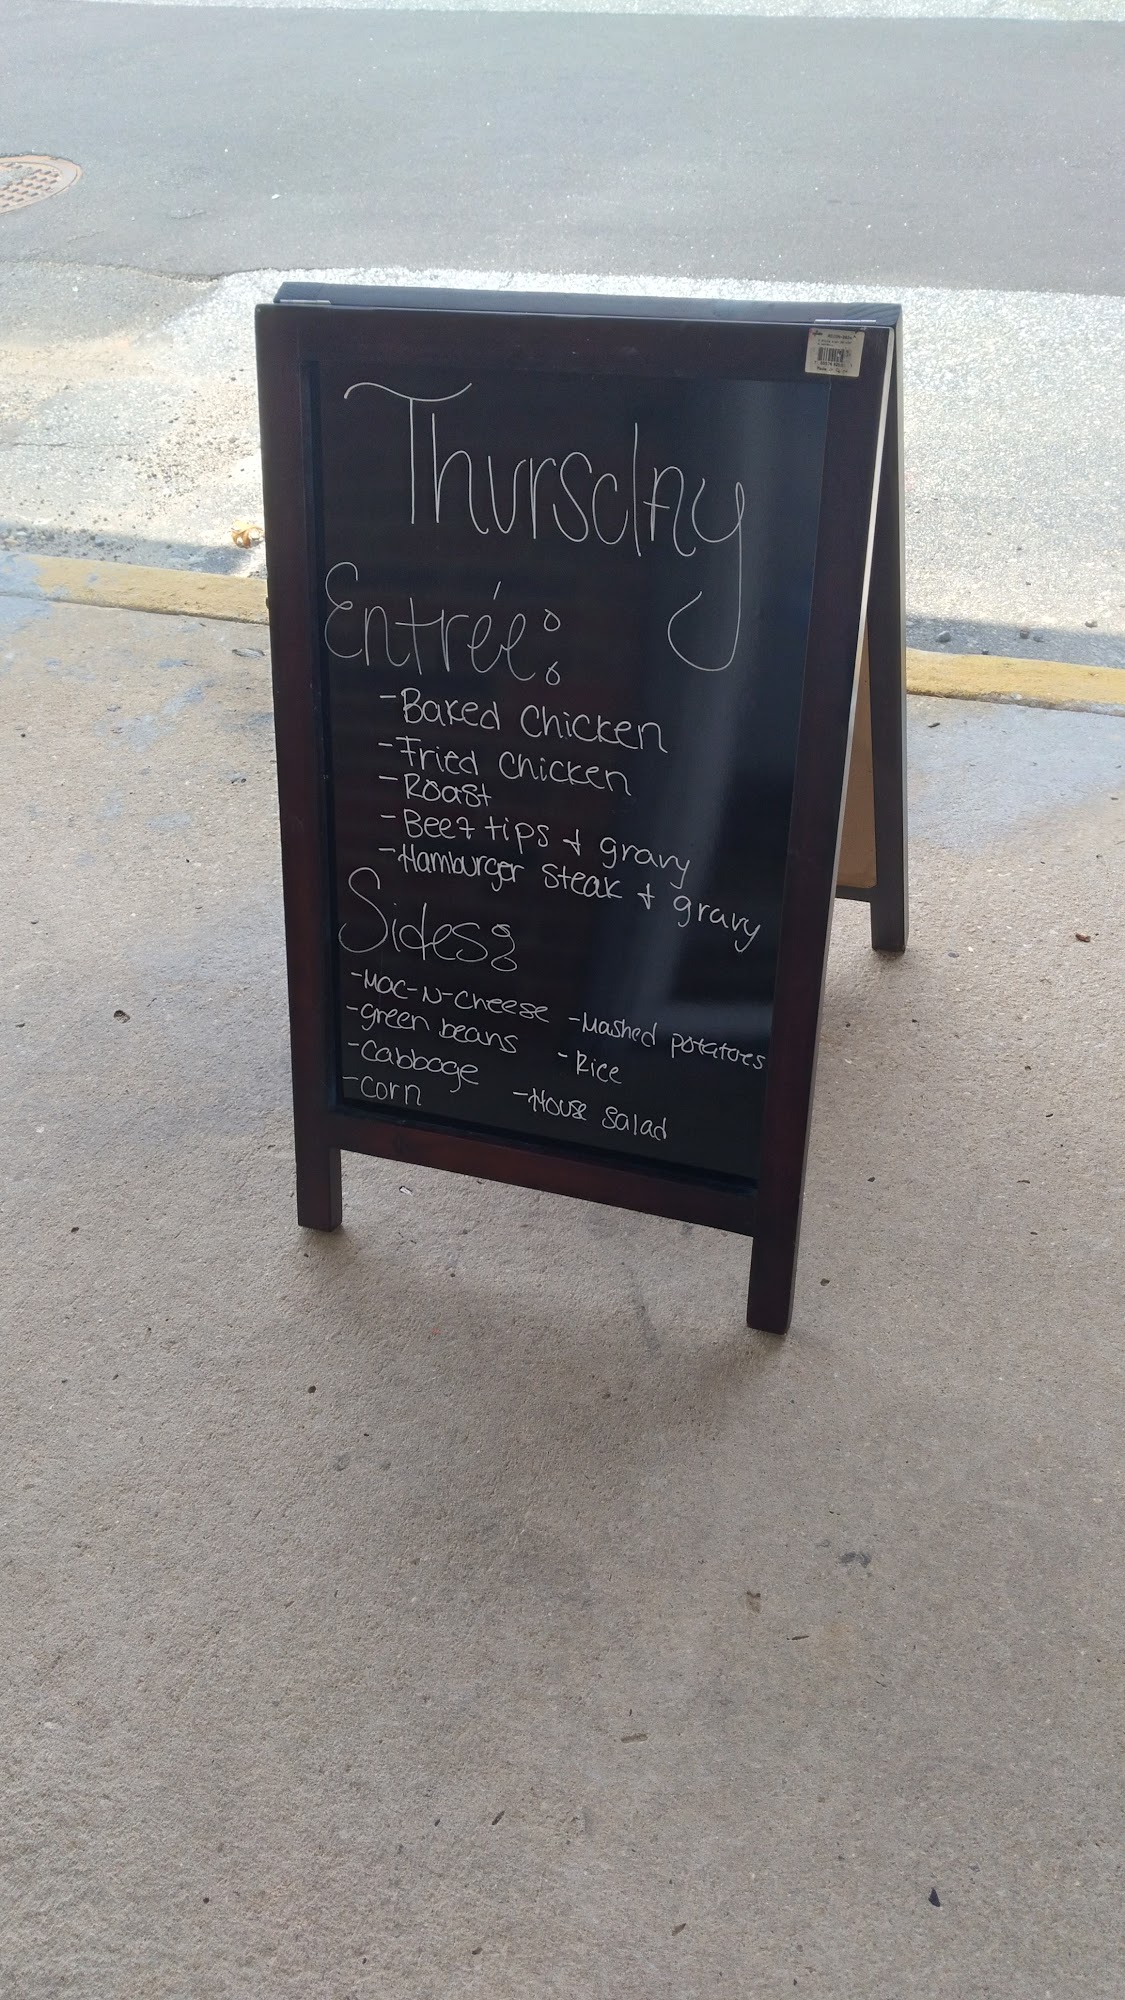 Thursday
Entrée:
-Baked Chicken
-Fried Chicken
-Roast
-Beef tips + gravy
-Hamburger Steak + gravy
Sides:
-Mac-N-Cheese -Mashed potatoes
-green beans -Rice
-Cabbage
-Corn -House Salad